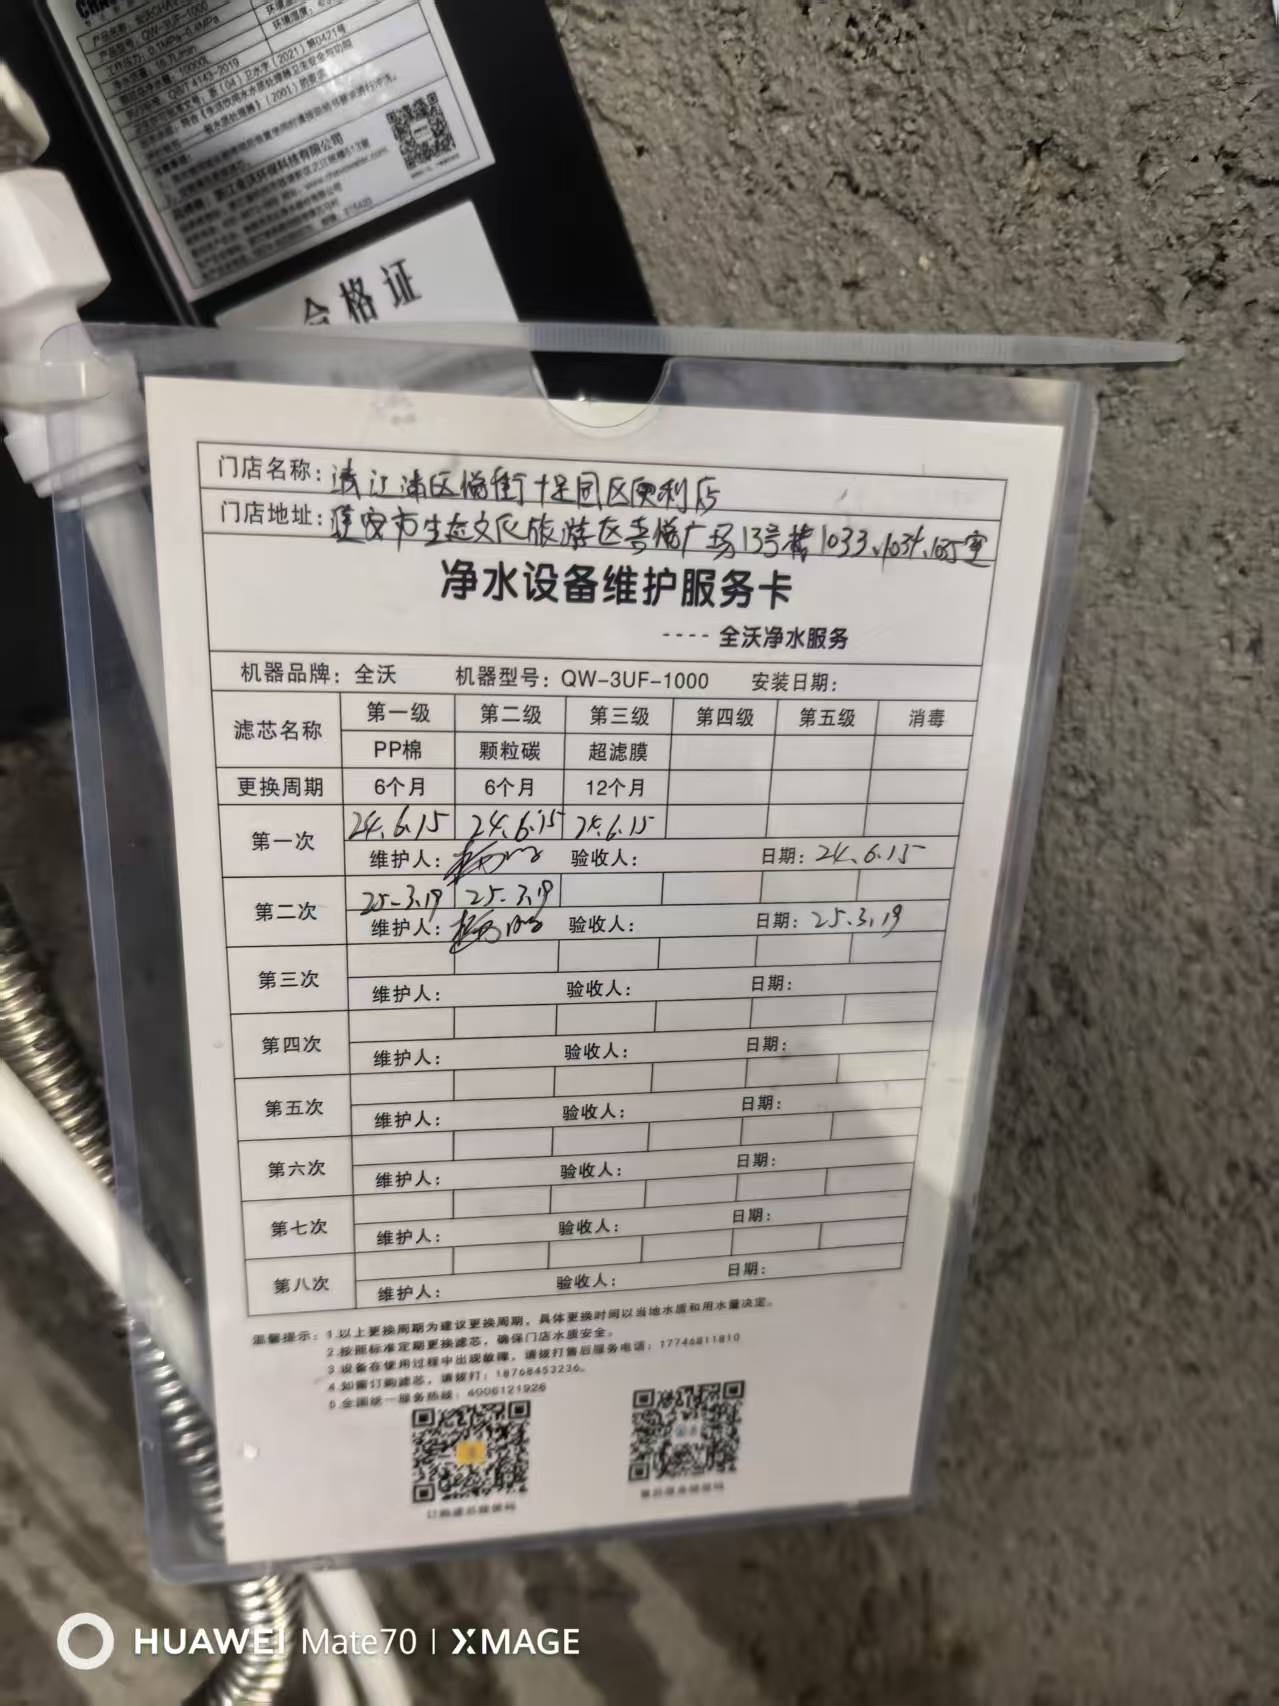 产品型号：QW-3UF-1000
工作压力：0.1MPa-0.4MPa
合格证
门店名称：清江浦区悦街十足同区便利店
门店地址：淮安市生态文化旅游区喜悦广场13号楼1033、1034、1035室
净水设备维护服务卡
---- 全沃净水服务
机器品牌：全沃 机器型号：QW-3UF-1000 安装日期：
滤芯名称 第一级 第二级 第三级 第四级 第五级 消毒
PP棉 颗粒碳 超滤膜
更换周期 6个月 6个月 12个月
第一次 24.6.15 24.6.15 24.6.15
维护人： 验收人： 日期：24.6.15
第二次 25-3.19 25-3.19
维护人： 验收人： 日期：25.3.19
第三次
维护人： 验收人： 日期：
第四次
维护人： 验收人： 日期：
第五次
维护人： 验收人： 日期：
第六次
维护人： 验收人： 日期：
第七次
维护人： 验收人： 日期：
第八次
维护人： 验收人： 日期：
温馨提示：1.以上更换周期为建议更换周期，具体更换时间以当地水质和用水量决定。
2.按照标准定期更换滤芯，确保门店水质安全。
3.设备在使用过程中出现故障，请拨打售后服务电话：17746811810
4.如需订购滤芯，请拨打：18768453236。
5.全国统一服务热线：4006121926
HUAWEI Mate70 | XMAGE